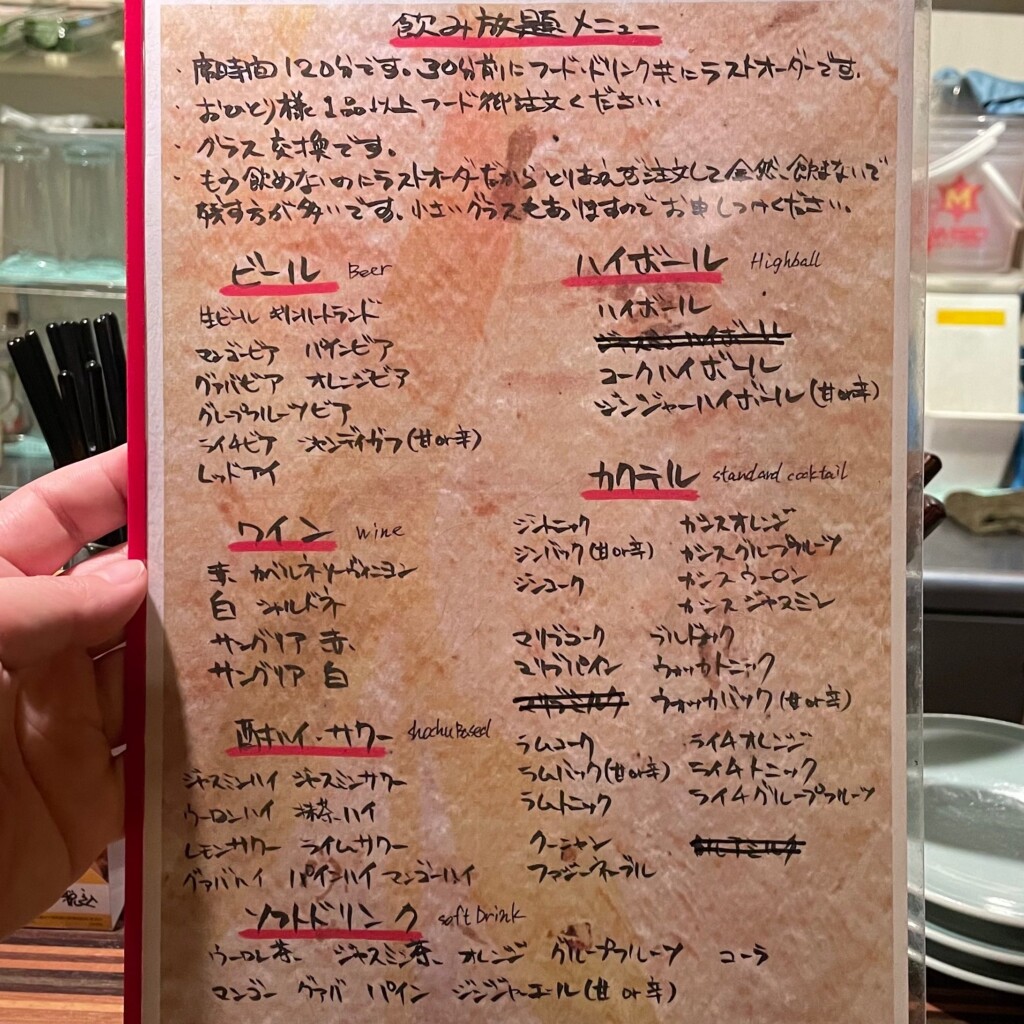 飲み放題メニュー
・席時間120分です。30分前にフード・ドリンク共にラストオーダーです。
・おひとり様1品以上フード御注文ください。
・グラス交換です。
・もう飲めないのにラストオーダーだからとりあえず注文して全然、飲まないで
残す方が多いです。小さいグラスもありますのでお申しつけください。
ビール Beer
生ビール キリンハートランド
マンゴービア パインビア
グァバビア オレンジビア
グレープフルーツビア
ライチビア シャンディガフ(甘or辛)
レッドアイ
ワイン wine
赤 カベルネソーヴィニヨン
白 シャルドネ
サングリア 赤
サングリア 白
酎ハイ・サワー shochu Based
ジャスミンハイ ジャスミンサワー
ウーロンハイ 抹茶ハイ
レモンサワー ライムサワー
グァバハイ パインハイ マンゴーハイ
ハイボール Highball
ハイボール
コークハイボール
ジンジャーハイボール(甘or辛)
カクテル standard cocktail
ジントニック カシスオレンジ
ジンバック(甘or辛) カシスグレープフルーツ
ジンコーク カシスウーロン
カシスジャスミン
マリブコーク ブルドック
マリブパイン ウォッカトニック
ウォッカバック(甘or辛)
ラムコーク ライチオレンジ
ラムバック(甘or辛) ライチトニック
ラムトニック ライチグレープフルーツ
クーニャン
ファジーネーブル
ソフトドリンク soft Drink
ウーロン茶 ジャスミン茶 オレンジ グレープフルーツ コーラ
マンゴー グァバ パイン ジンジャーエール(甘or辛)